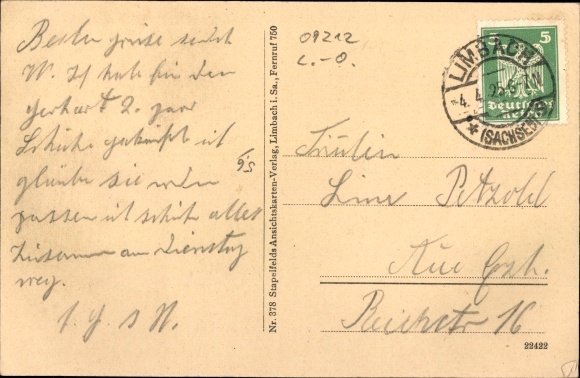 Besten Grüße sendet
W. Ich hab für den
Gerhart 2. paar
Schuhe gekauft ich
glaube sie werden
passen ich schicke alles
zusammen am Dienstag
weg.
09212
L.-O.
5.6
Nr. 378 Stapelfelds Ansichtskarten-Verlag, Limbach i. Sa., Fernruf 750
5 5
Deutsches
LIMBACH
4. 4. 25
* (SACHSEN)
Fräulein
Line Petzold
Aue Erzh.
Reichstr 16
22422